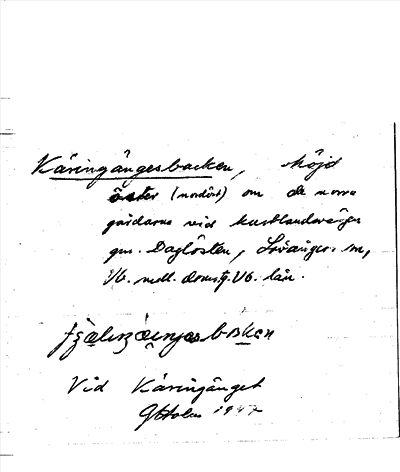 Käringängesbacken, höjd
öster (nordöst) om de norra
gårdarna vid kustlandsvägen
gm. Daglösten, Lövånger. sn,
Vb. mell. doms. Vb. län.
Vid Käringänget
1947